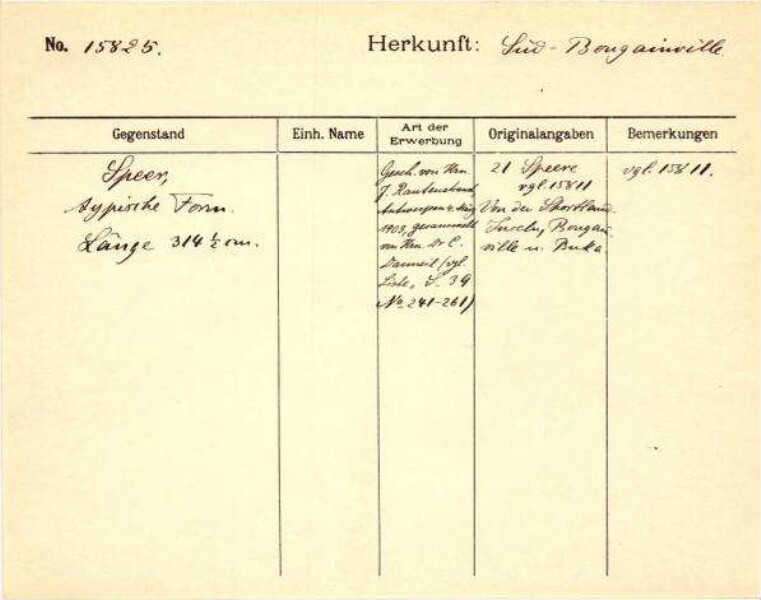 No. 15825.
Herkunft: Süd-Bougainville
Gegenstand
Einh. Name
Art der Erwerbung
Originalangaben
Bemerkungen
Speer,
typische Form.
Länge 314 ½ cm.
Gesch. von Hrn
J. Rautenstrauch
Antwerpen 4. März
1909, gesammelt
von Hrn Dr E.
Danneil (vgl.
Liste, S. 39
No 241-261)
21 Speere
vgl. 15811
Von den Shortland
Inseln, Bougain
ville u. Buka.
vgl. 15811.